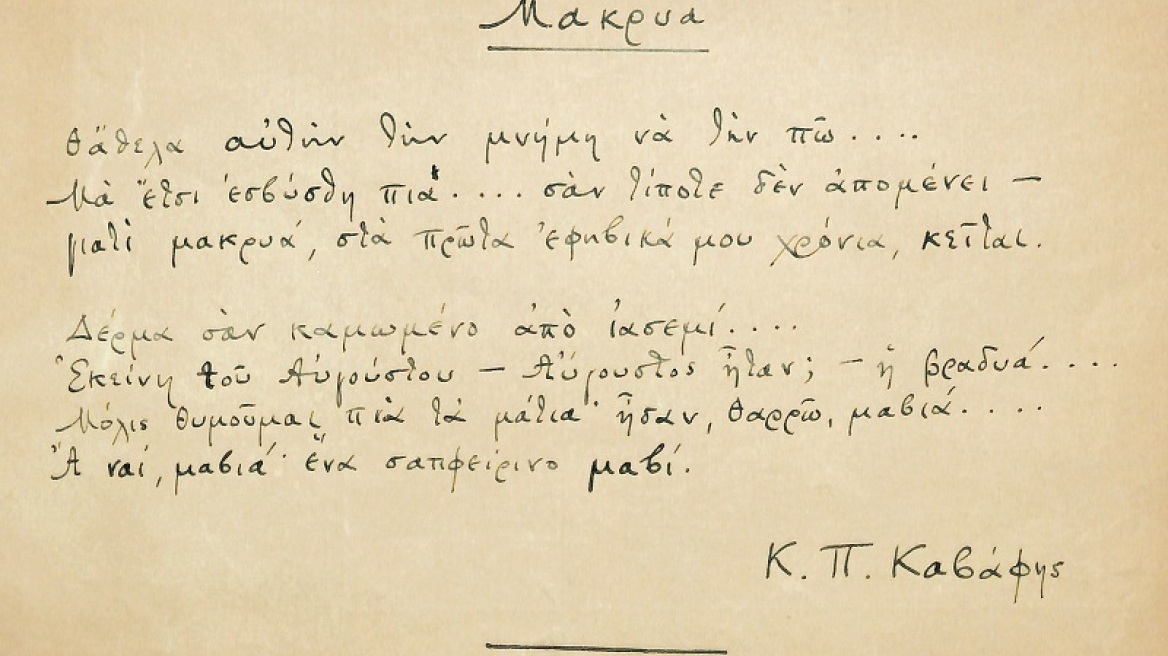 Μακρυα
Θἄθελα αὐτὴν τὴν μνήμη νὰ τὴν πῶ....
Μὰ ἔτσι ἐσβύσθη πιὰ.... σὰν τίποτε δὲν ἀπομένει —
γιατὶ μακρυά, στὰ πρῶτα ἐφηβικά μου χρόνια, κεῖται.
Δέρμα σὰν καμωμένο ἀπὸ ἰασεμί....
Ἐκείνη τοῦ Αὐγούστου — Αὔγουστος ἦταν; — ἡ βραδυά....
Μόλις θυμοῦμαι πιὰ τὰ μάτια· ἦσαν, θαρρῶ, μαβιά....
Ἂ ναί, μαβιά· ἕνα σαπφείρινο μαβί.
Κ. Π. Καβάφης